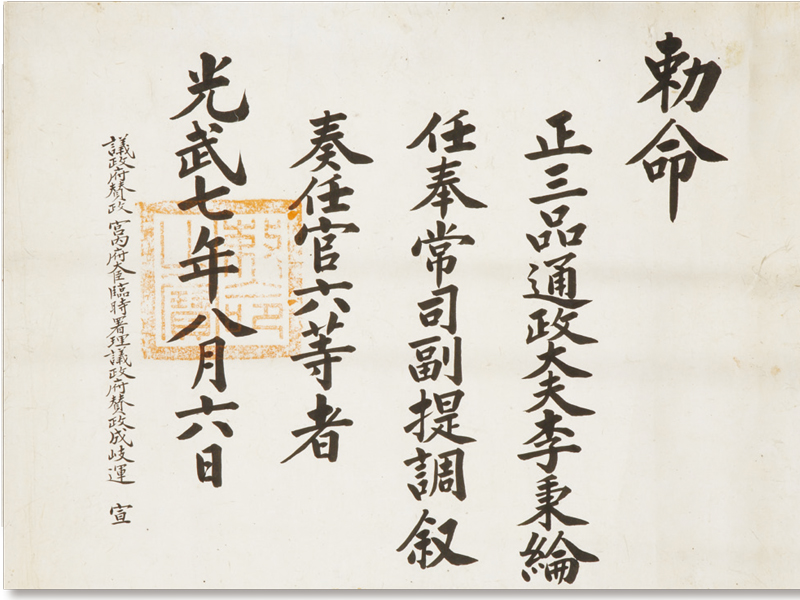 勅命
正三品通政大夫李秉綸
任奉常司副提調叙
奏任官六等者
光武七年八月六日
議政府賛政 宮內府大臣臨時署理議政府賛政成岐運 宣